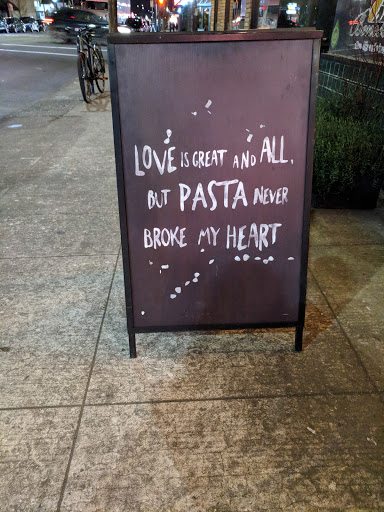 LOVE IS GREAT AND ALL,
BUT PASTA NEVER
BROKE MY HEART